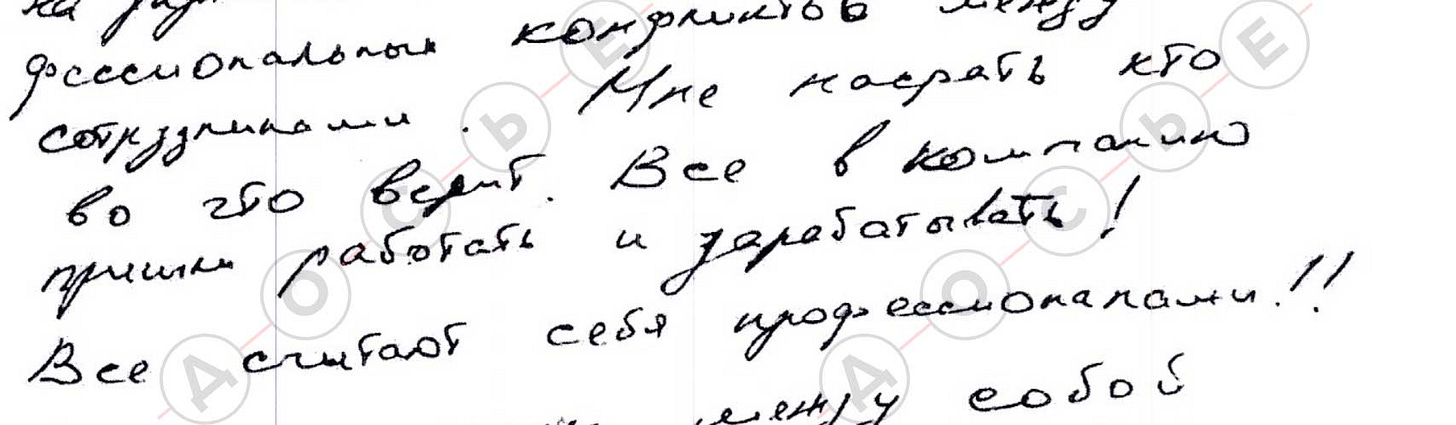 фессиональных конфликтов между
сотрудниками. Мне насрать кто
во что верит. Все в компанию
пришли работать и зарабатывать!
Все считают себя профессионалами!!!
между собой
ДОСЬЕ
ДОСЬЕ